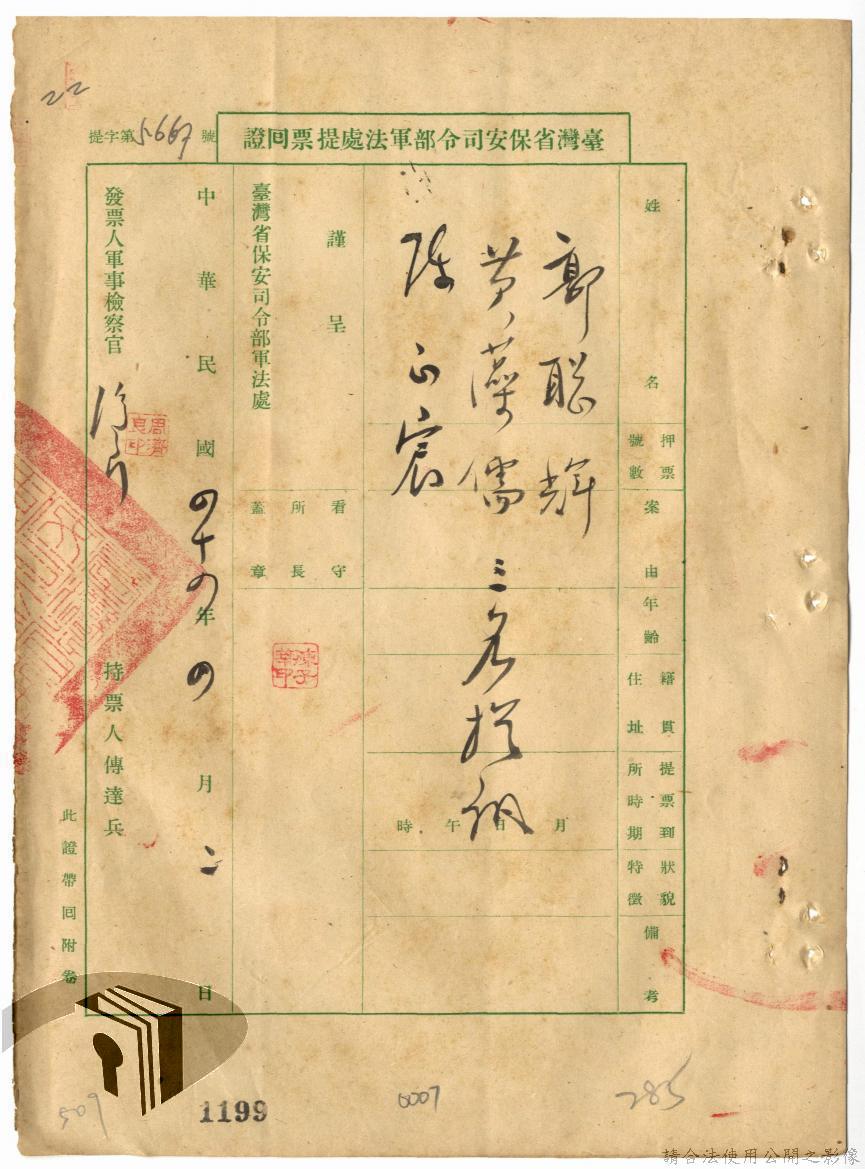 22
提字第5667號
臺灣省保安司令部軍法處提票回證
姓名
押票號數
案由
年齡
籍貫住址
提票到所時期
狀貌特徵
備考
郭聰輝
黃藻儒 三名提訊
陳正宸
月 日 午 時
謹呈
臺灣省保安司令部軍法處
看守所長蓋章
中華民國四十四年四月二日
發票人軍事檢察官
持票人傳達兵
此證帶回附卷
509
1199
0007
285
請合法使用公開之影像